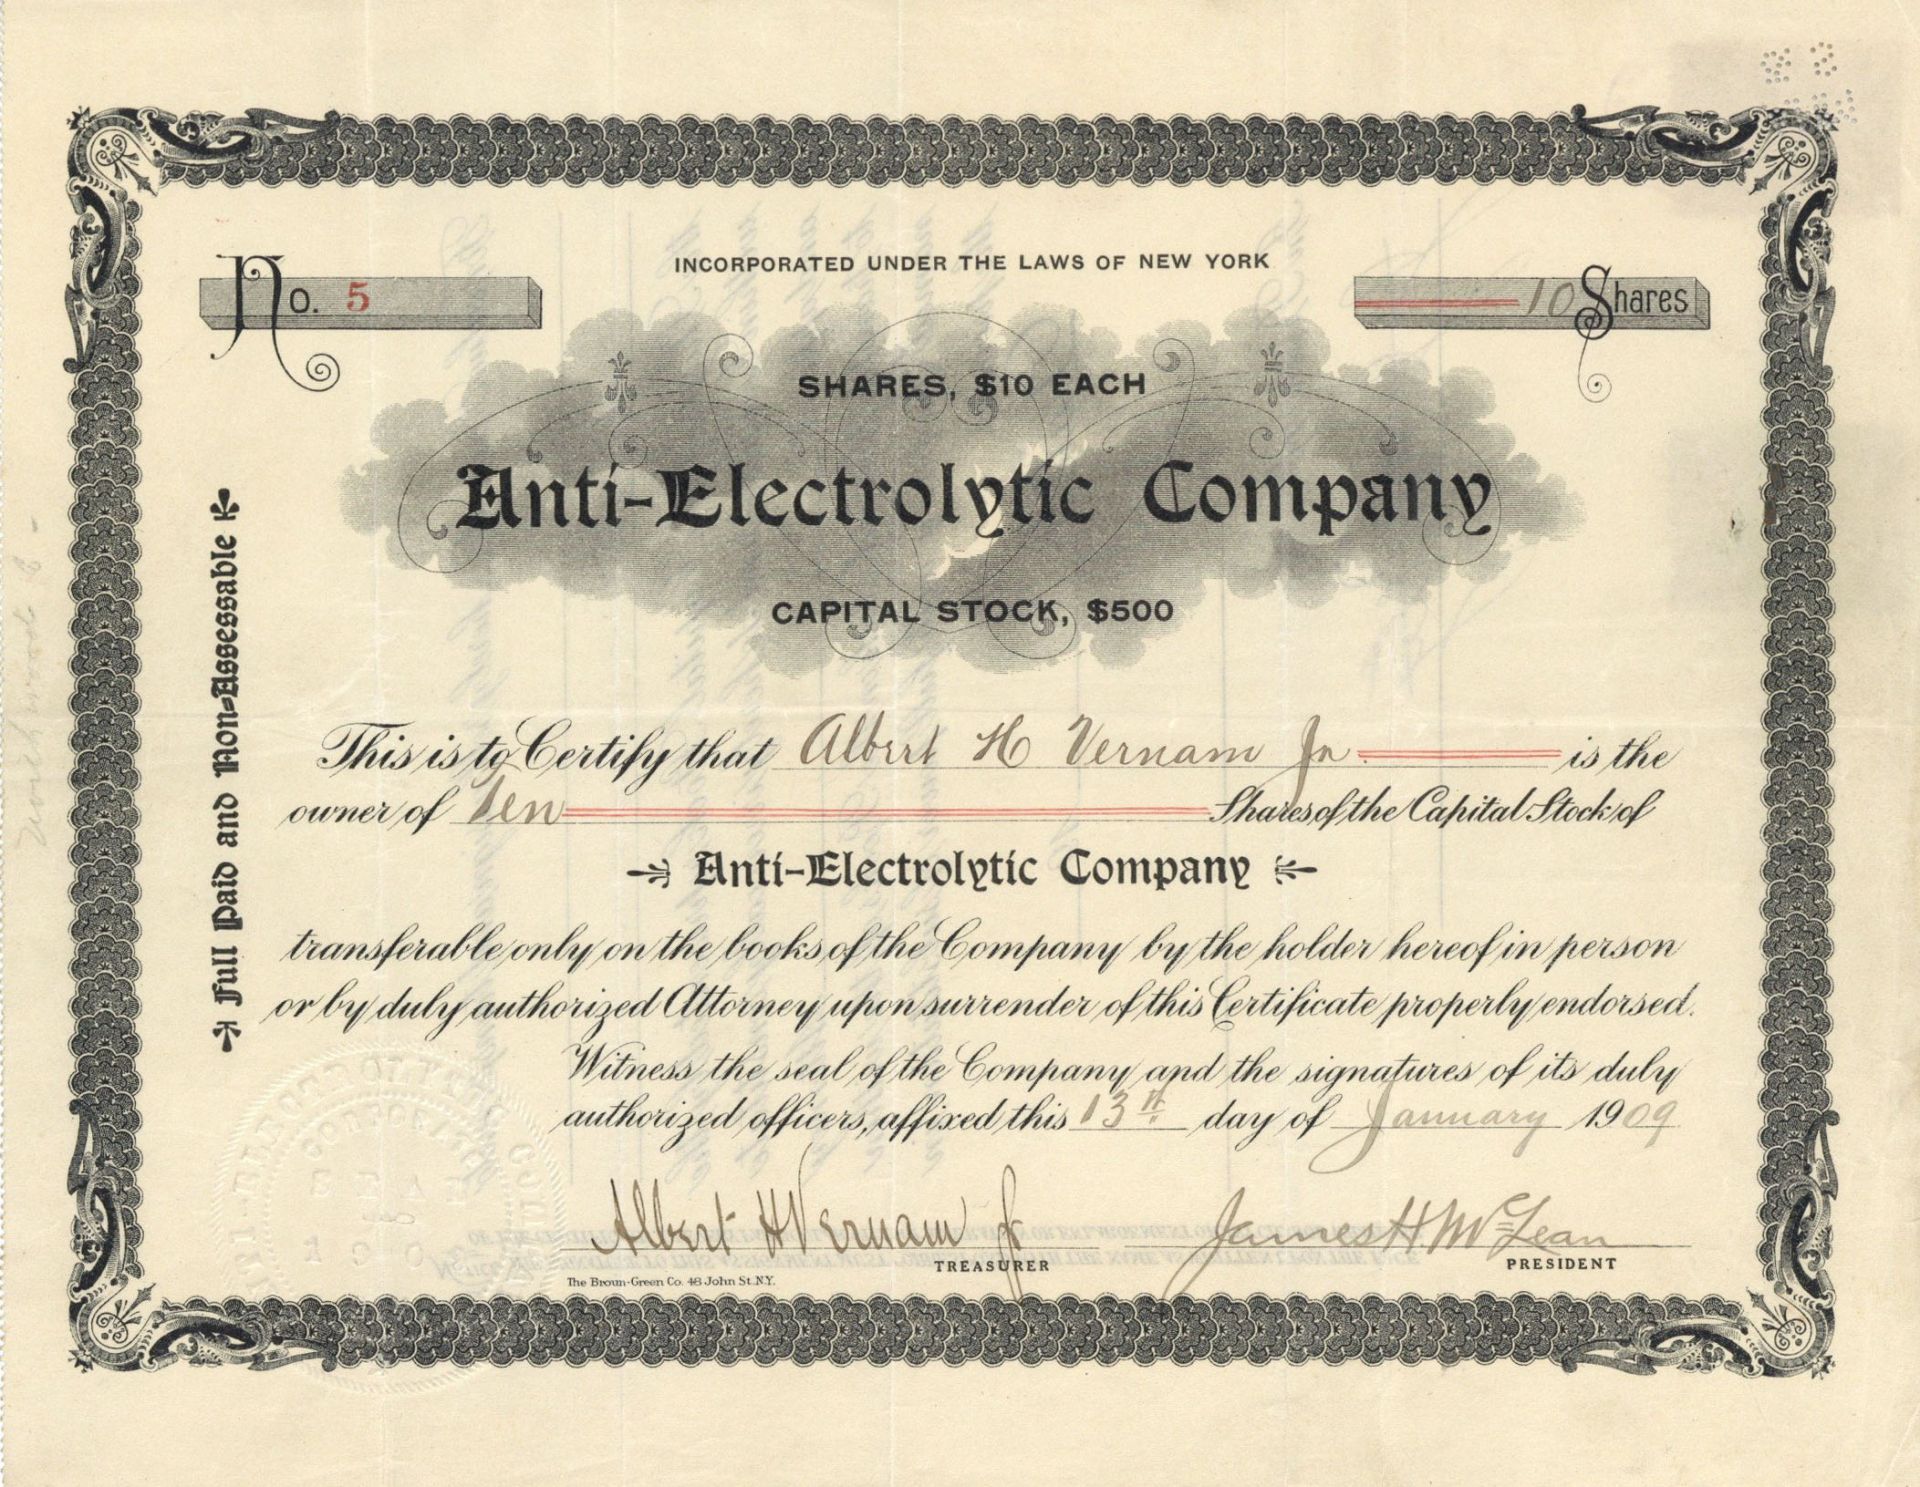 INCORPORATED UNDER THE LAWS OF NEW YORK
No. 5
10 Shares
SHARES, $10 EACH
Anti-Electrolytic Company
CAPITAL STOCK, $500
Full Paid and Non-Assessable
This is to Certify that Albert H Vernam Jr. is the
owner of Ten Shares of the Capital Stock of
Anti-Electrolytic Company
transferable only on the books of the Company by the holder hereof in person
or by duly authorized Attorney upon surrender of this Certificate properly endorsed.
Witness the seal of the Company and the signatures of its duly
authorized officers, affixed this 13th day of January 1909
Albert H Vernam Jr
TREASURER
James H. McLean
PRESIDENT
The Broun-Green Co. 48 John St. N.Y.
SEAL